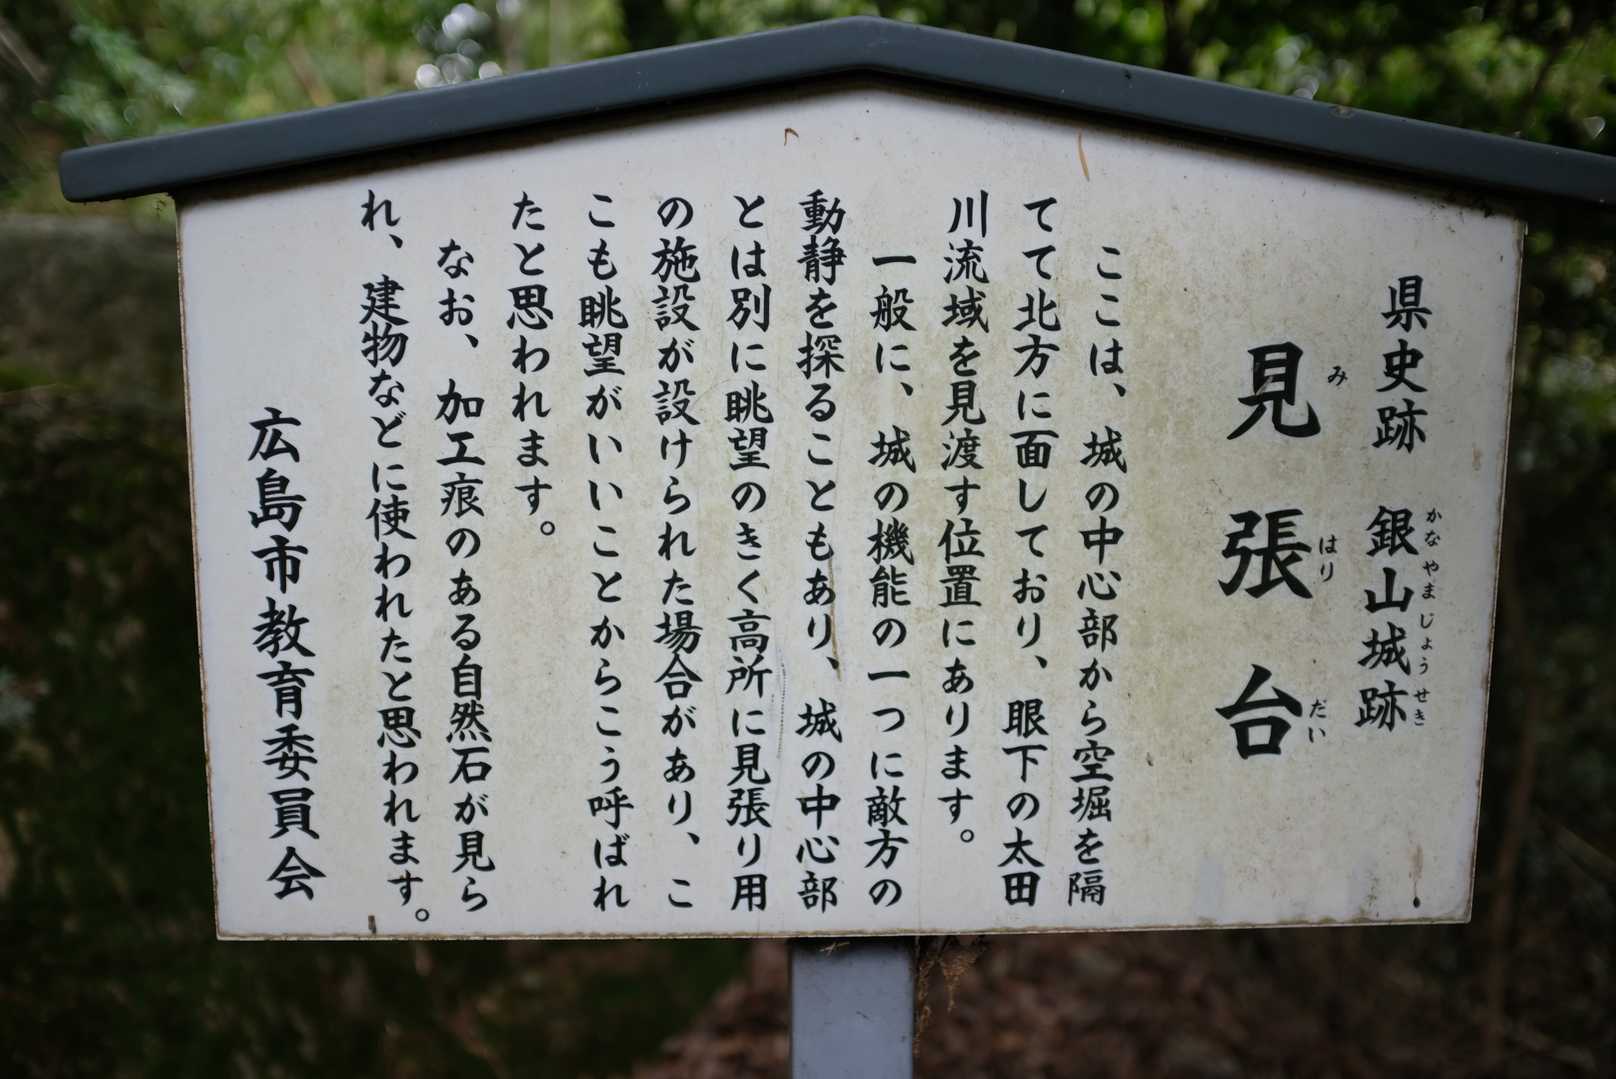 県史跡 銀山城跡
かなやまじょうせき
見張台
みはりだい
ここは、城の中心部から空堀を隔
てて北方に面しており、眼下の太田
川流域を見渡す位置にあります。
一般に、城の機能の一つに敵方の
動静を探ることもあり、城の中心部
とは別に眺望のきく高所に見張り用
の施設が設けられた場合があり、こ
こも眺望がいいことからこう呼ばれ
たと思われます。
なお、加工痕のある自然石が見ら
れ、建物などに使われたと思われます。
広島市教育委員会